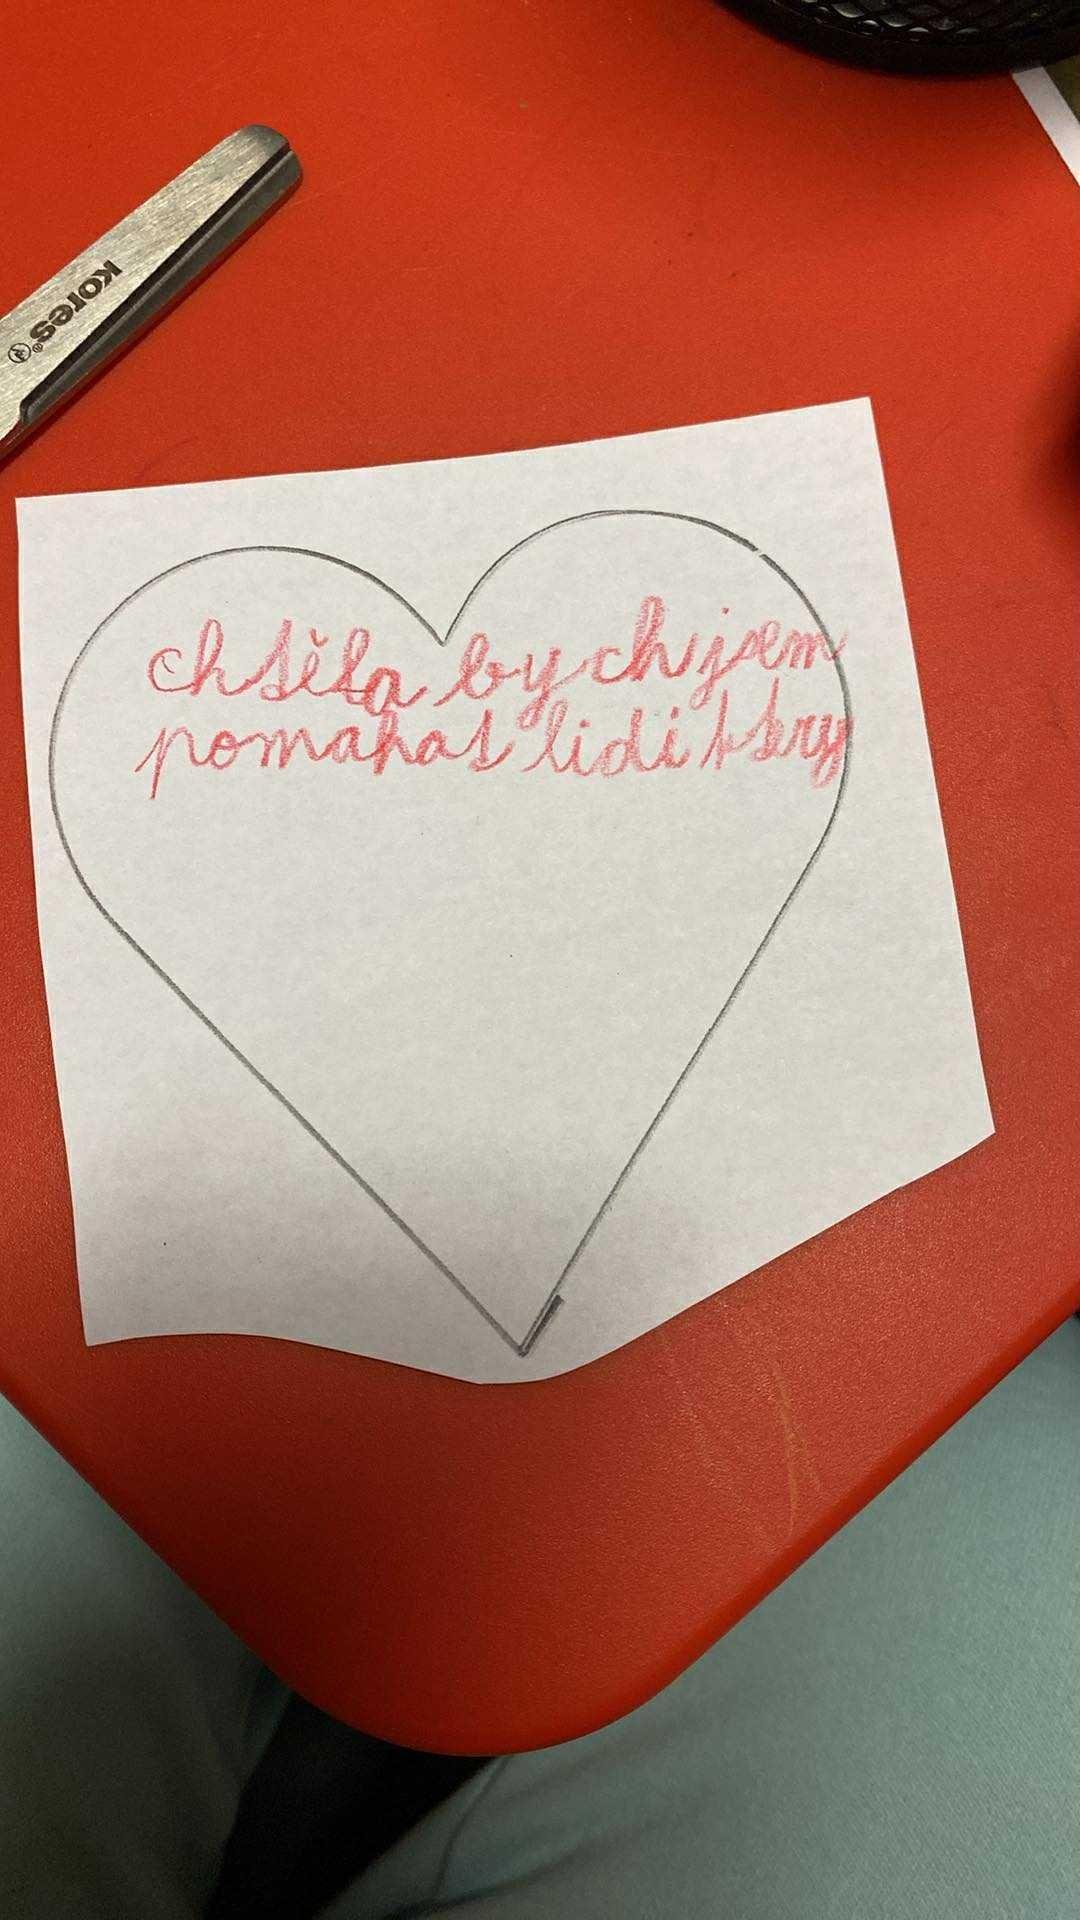 Kores
chtěla bych jsem
pomahat lidi ktery